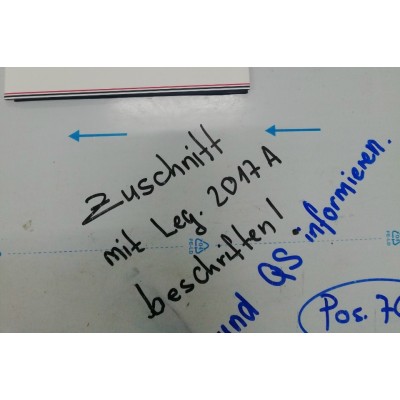 Zuschnitt
mit Leg. 2017A
beschriften!
und QS informieren.
Pos. 70